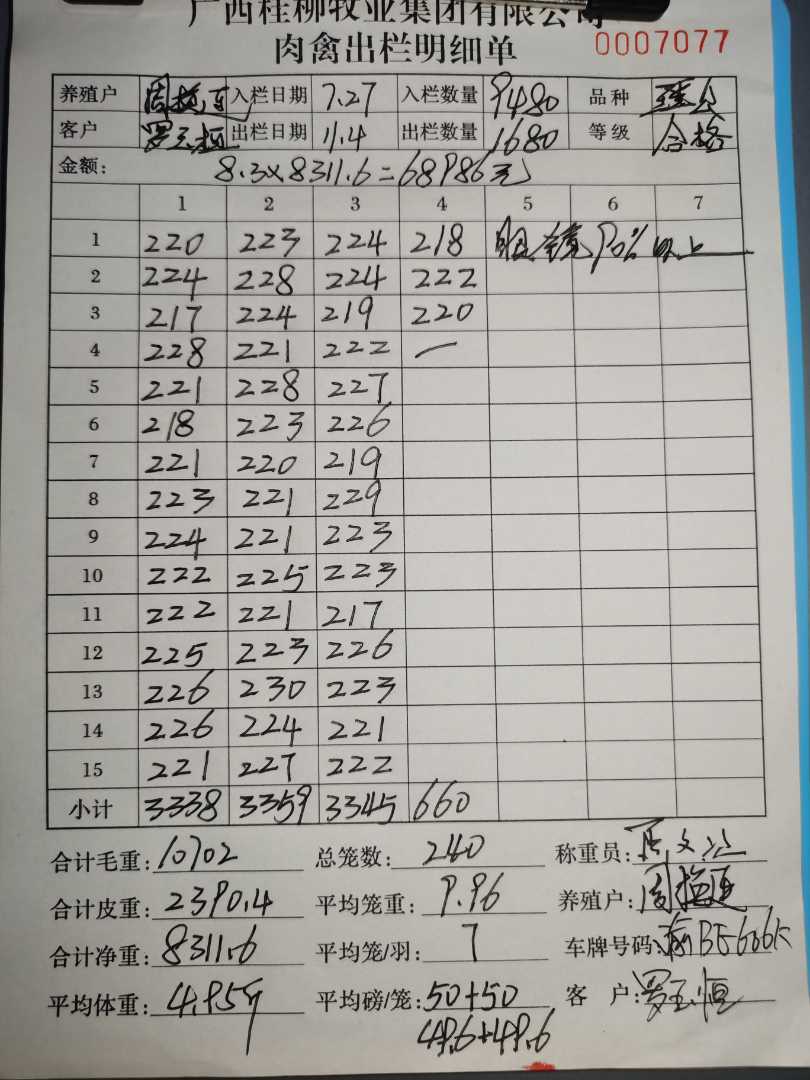 广西桂柳牧业集团有限公司
肉禽出栏明细单 0007077
养殖户 周 入栏日期 7.27 入栏数量 9480 品种
客户 罗 出栏日期 11.4 出栏数量 1680 等级 合格
金额: 8.3×8311.6=68986元
1 2 3 4 5 6 7
1 220 223 224 218 眼镜90%以上
2 224 228 224 222
3 217 224 219 220
4 228 221 222 一
5 221 228 227
6 218 223 226
7 221 220 219
8 223 221 229
9 224 221 223
10 222 225 223
11 222 221 217
12 225 223 226
13 226 230 223
14 226 224 221
15 221 227 222
小计 3338 3359 3345 660
合计毛重: 10702 总笼数: 240 称重员:
合计皮重: 2390.4 平均笼重: 9.96 养殖户: 周
合计净重: 8311.6 平均笼/羽: 7 车牌号码:
平均体重: 4.959 平均磅/笼: 50+50 客户: 罗 恒
49.6+49.6